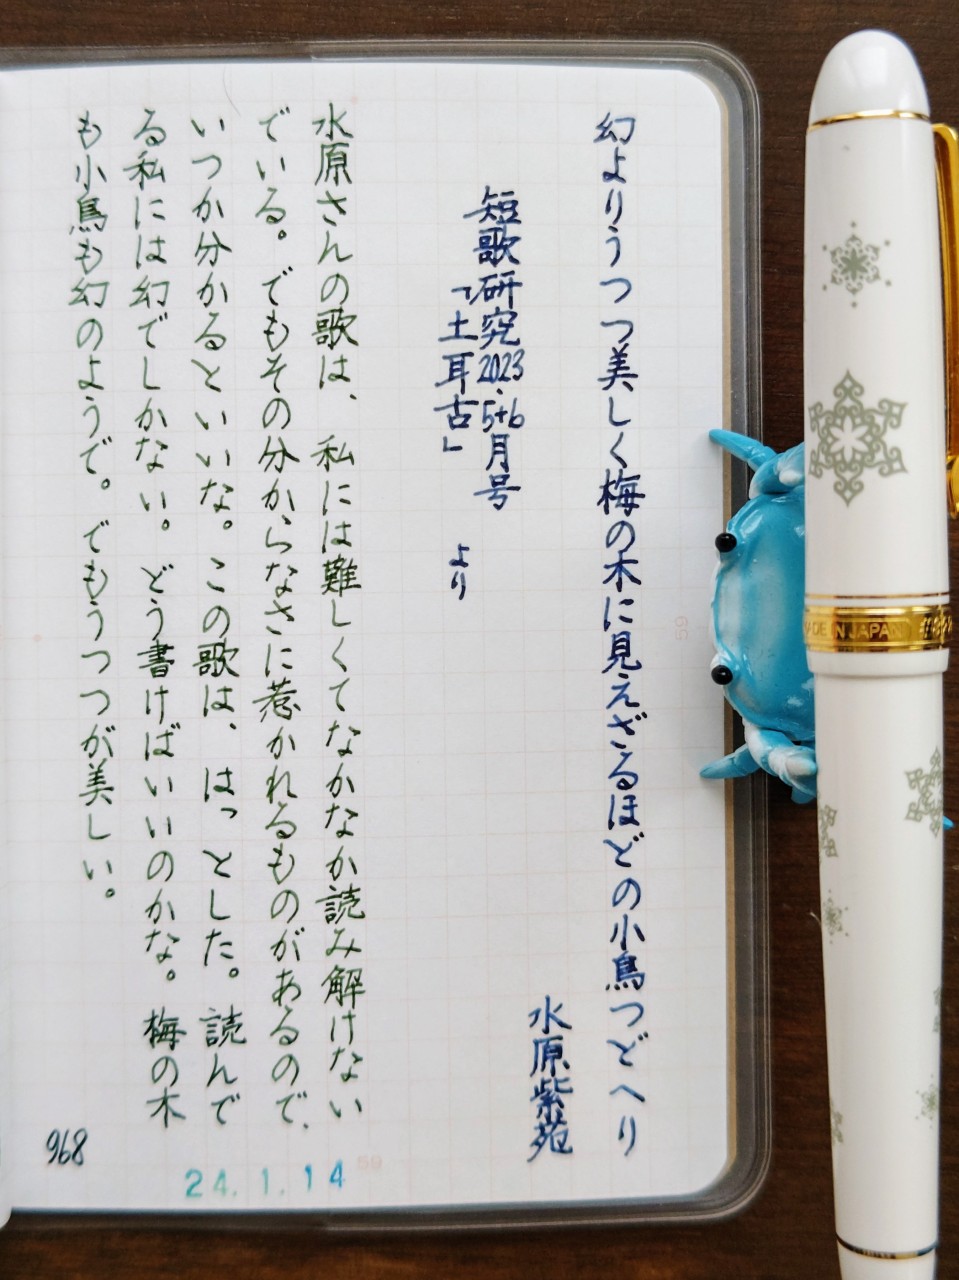 幻よりうつつ美しく梅の木に見えざるほどの小鳥つどへり
水原紫苑
短歌研究2023.5+6月号
「土耳古」より
水原さんの歌は、私には難しくてなかなか読み解けない
でいる。でもその分からなさに惹かれるものがあるので、
いつか分かるといいな。この歌は、はっとした。読んで
る私には幻でしかない。どう書けばいいのかな。梅の木
も小鳥も幻のようで。でもうつつが美しい。
968
24.1.14
59
59
MADE IN JAPAN